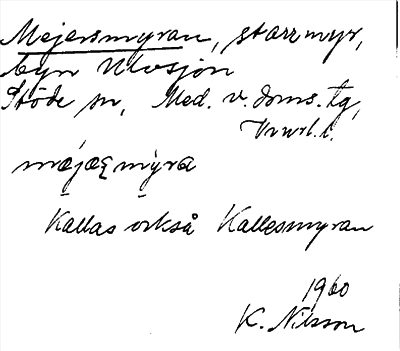 Mejersmyran, starrmyr,
byn Ulvsjön
Stöde sn, Med. v. doms. tg,
Vnrl. l.
mæjæʂmyra
Kallas också Kallesmyran
1960
K. Nilsson